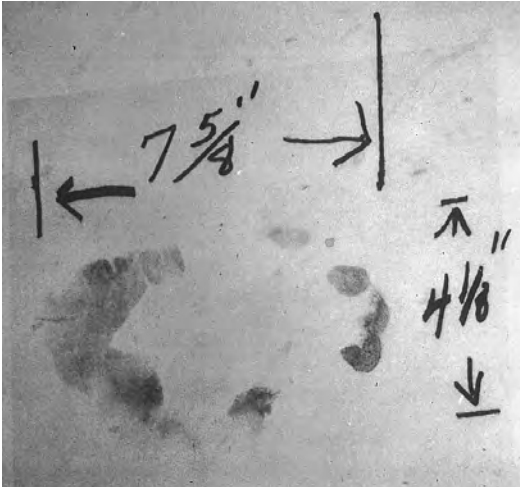 7 5/8"
4 1/8"